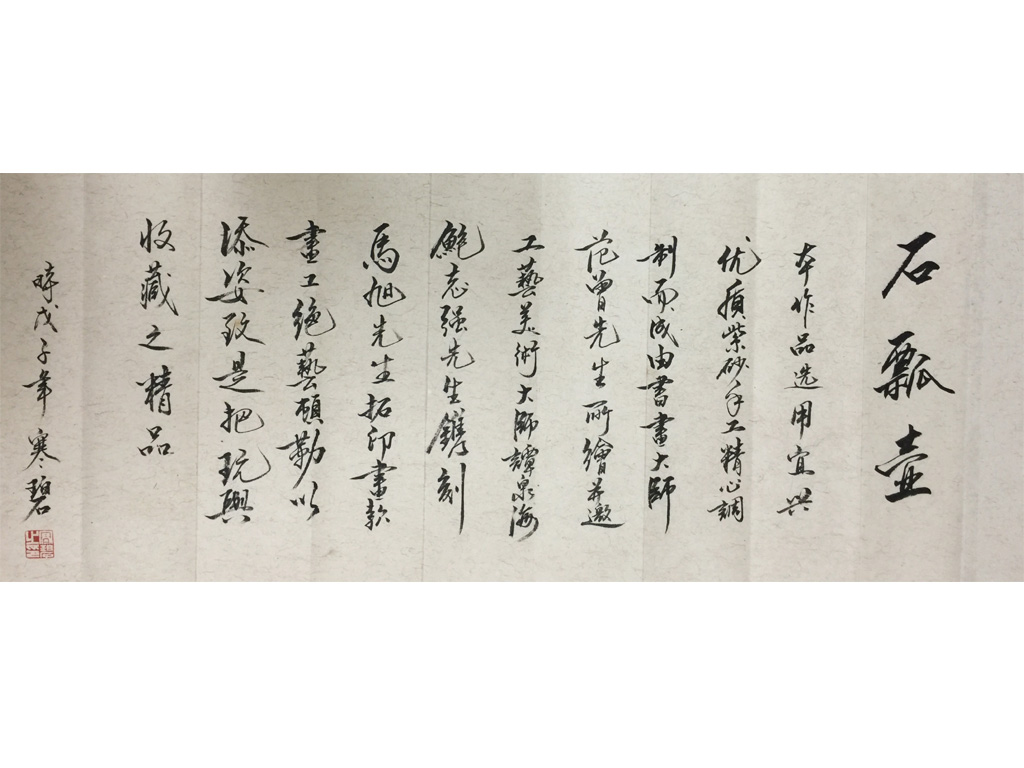 石瓢壶
本作品选用宜兴
优质紫砂手工精心調
制而成由書畫大师
范曾先生所繪并邀
工藝美術大师譚泉海
鲍志强先生鐫刻
馬旭先生拓印畫款
畫工绝藝頓勒以
添姿致是把玩與
收藏之精品
時戊子年寒碧